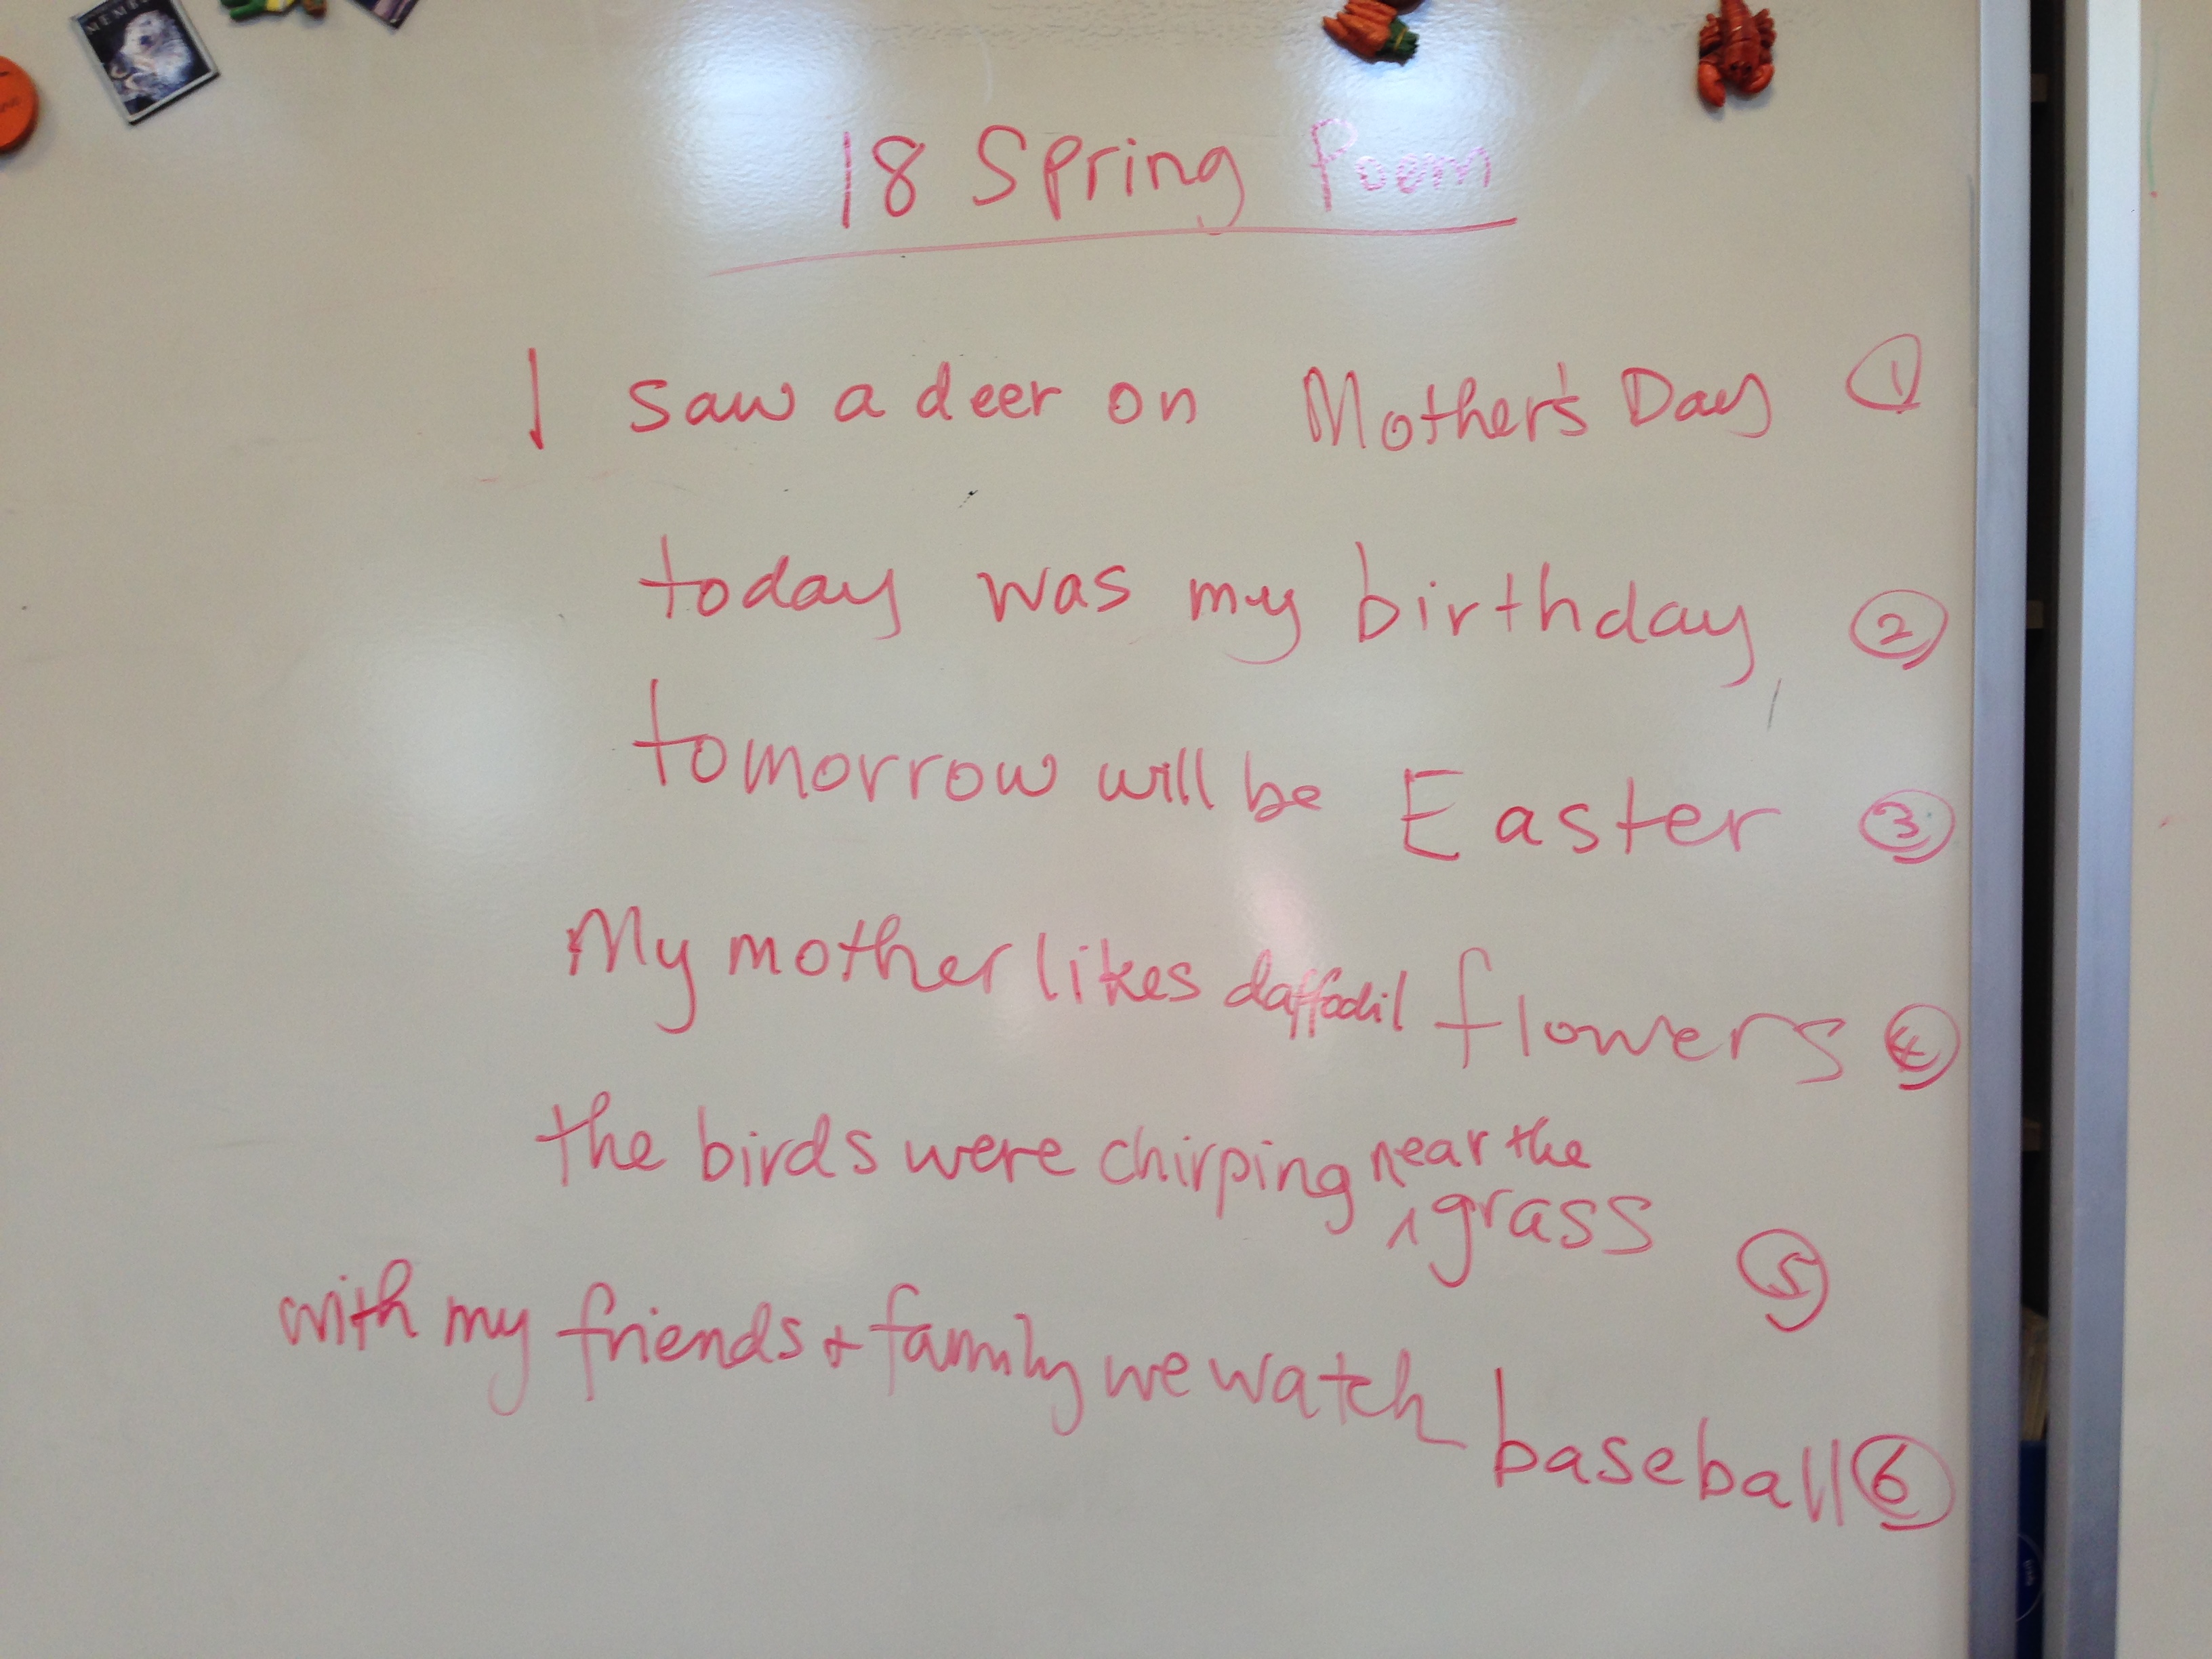 MEMB
18 Spring Poem
I saw a deer on Mother's Day ①
today was my birthday ②
tomorrow will be Easter ③
My mother likes daffodil flowers ④
the birds were chirping near the grass ⑤
with my friends & family we watch baseball ⑥